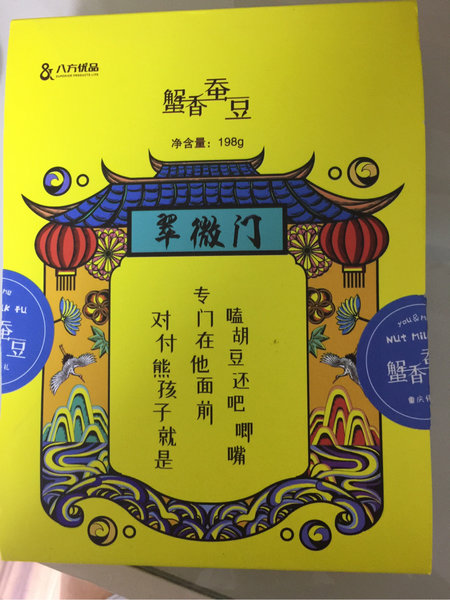 八方优品
SUPERIOR PRODUCTS LIFE
蟹香蚕豆
净含量：198g
翠微门
嗑胡豆还吧唧嘴
专门在他面前
对付熊孩子就是
蚕
豆
礼
you & m
Nut Mil
蟹香
重庆